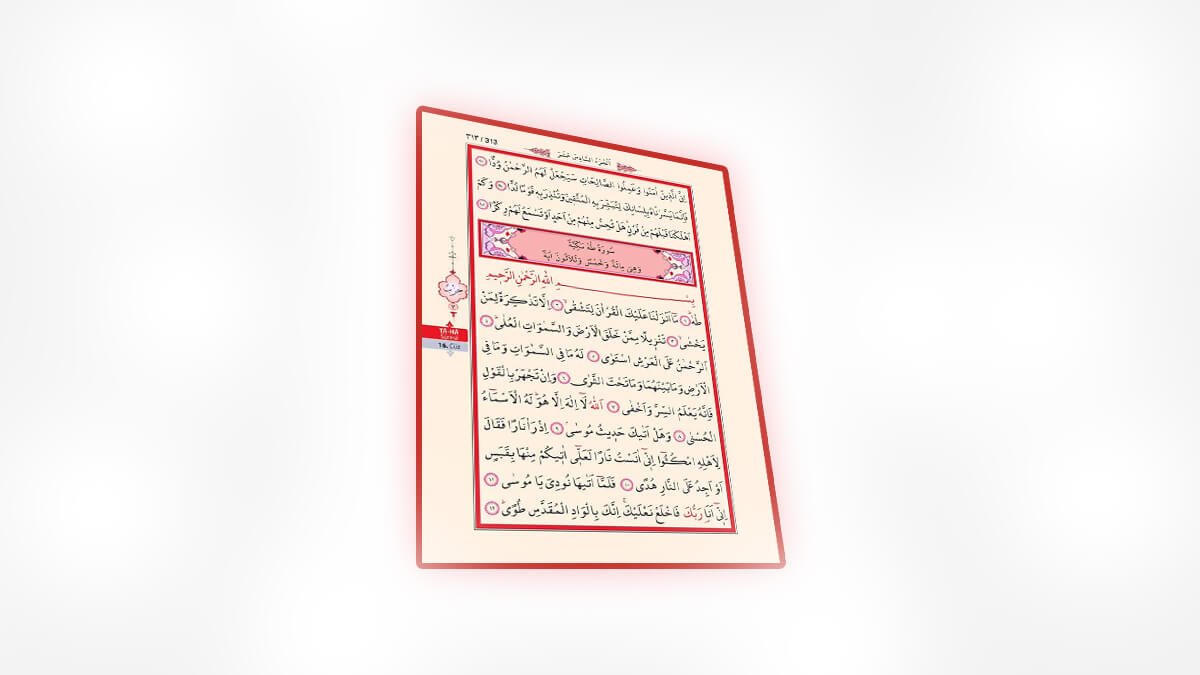 ٣١٣ / 313
اَلْجُزْءُ السَّادِسَ عَشَرَ
اِنَّ الَّذ۪ينَ اٰمَنُوا وَعَمِلُوا الصَّالِحَاتِ سَيَجْعَلُ لَهُمُ الرَّحْمٰنُ وُدًّا ﴿٩٦﴾
فَاِنَّمَا يَسَّرْنَاهُ بِلِسَانِكَ لِتُبَشِّرَ بِهِ الْمُتَّق۪ينَ وَتُنْذِرَ بِه۪ قَوْمًا لُدًّا ﴿٩٧﴾ وَكَمْ
اَهْلَكْنَا قَبْلَهُمْ مِنْ قَرْنٍۜ هَلْ تُحِسُّ مِنْهُمْ مِنْ اَحَدٍ اَوْ تَسْمَعُ لَهُمْ رِكْزًا ﴿٩٨﴾
سُورَةُ طٰهٰ مَكِّيَّةٌ
وَهِيَ مِائَةٌ وَخَمْسٌ وَثَلَاثُونَ اٰيَةً
بِسْمِ اللّٰهِ الرَّحْمٰنِ الرَّح۪يمِ
طٰهٰۜ ﴿١﴾ مَٓا اَنْزَلْنَا عَلَيْكَ الْقُرْاٰنَ لِتَشْقٰىۙ ﴿٢﴾ اِلَّا تَذْكِرَةً لِمَنْ
يَخْشٰىۙ ﴿٣﴾ تَنْز۪يلًا مِمَّنْ خَلَقَ الْاَرْضَ وَالسَّمٰوَاتِ الْعُلٰىۜ ﴿٤﴾
اَلرَّحْمٰنُ عَلَى الْعَرْشِ اسْتَوٰى ﴿٥﴾ لَهُ مَا فِي السَّمٰوَاتِ وَمَا فِي
الْاَرْضِ وَمَا بَيْنَهُمَا وَمَا تَحْتَ الثَّرٰى ﴿٦﴾ وَاِنْ تَجْهَرْ بِالْقَوْلِ
فَاِنَّهُ يَعْلَمُ السِّرَّ وَاَخْفٰى ﴿٧﴾ اَللّٰهُ لَٓا اِلٰهَ اِلَّا هُوَۜ لَهُ الْاَسْمَٓاءُ
الْحُسْنٰى ﴿٨﴾ وَهَلْ اَتٰيكَ حَد۪يثُ مُوسٰىۢ ﴿٩﴾ اِذْ رَاٰ نَارًا فَقَالَ
لِاَهْلِهِ امْكُثُٓوا اِنّ۪ٓي اٰنَسْتُ نَارًا لَعَلّ۪ٓي اٰت۪يكُمْ مِنْهَا بِقَبَسٍ
اَوْ اَجِدُ عَلَى النَّارِ هُدًى ﴿١٠﴾ فَلَمَّٓا اَتٰيهَا نُودِيَ يَا مُوسٰى ﴿١١﴾
اِنّ۪ٓي اَنَا۬ رَبُّكَ فَاخْلَعْ نَعْلَيْكَۚ اِنَّكَ بِالْوَادِ الْمُقَدَّسِ طُوًىۜ ﴿١٢﴾
حزب
TÂ-HÂ
16. Cüz